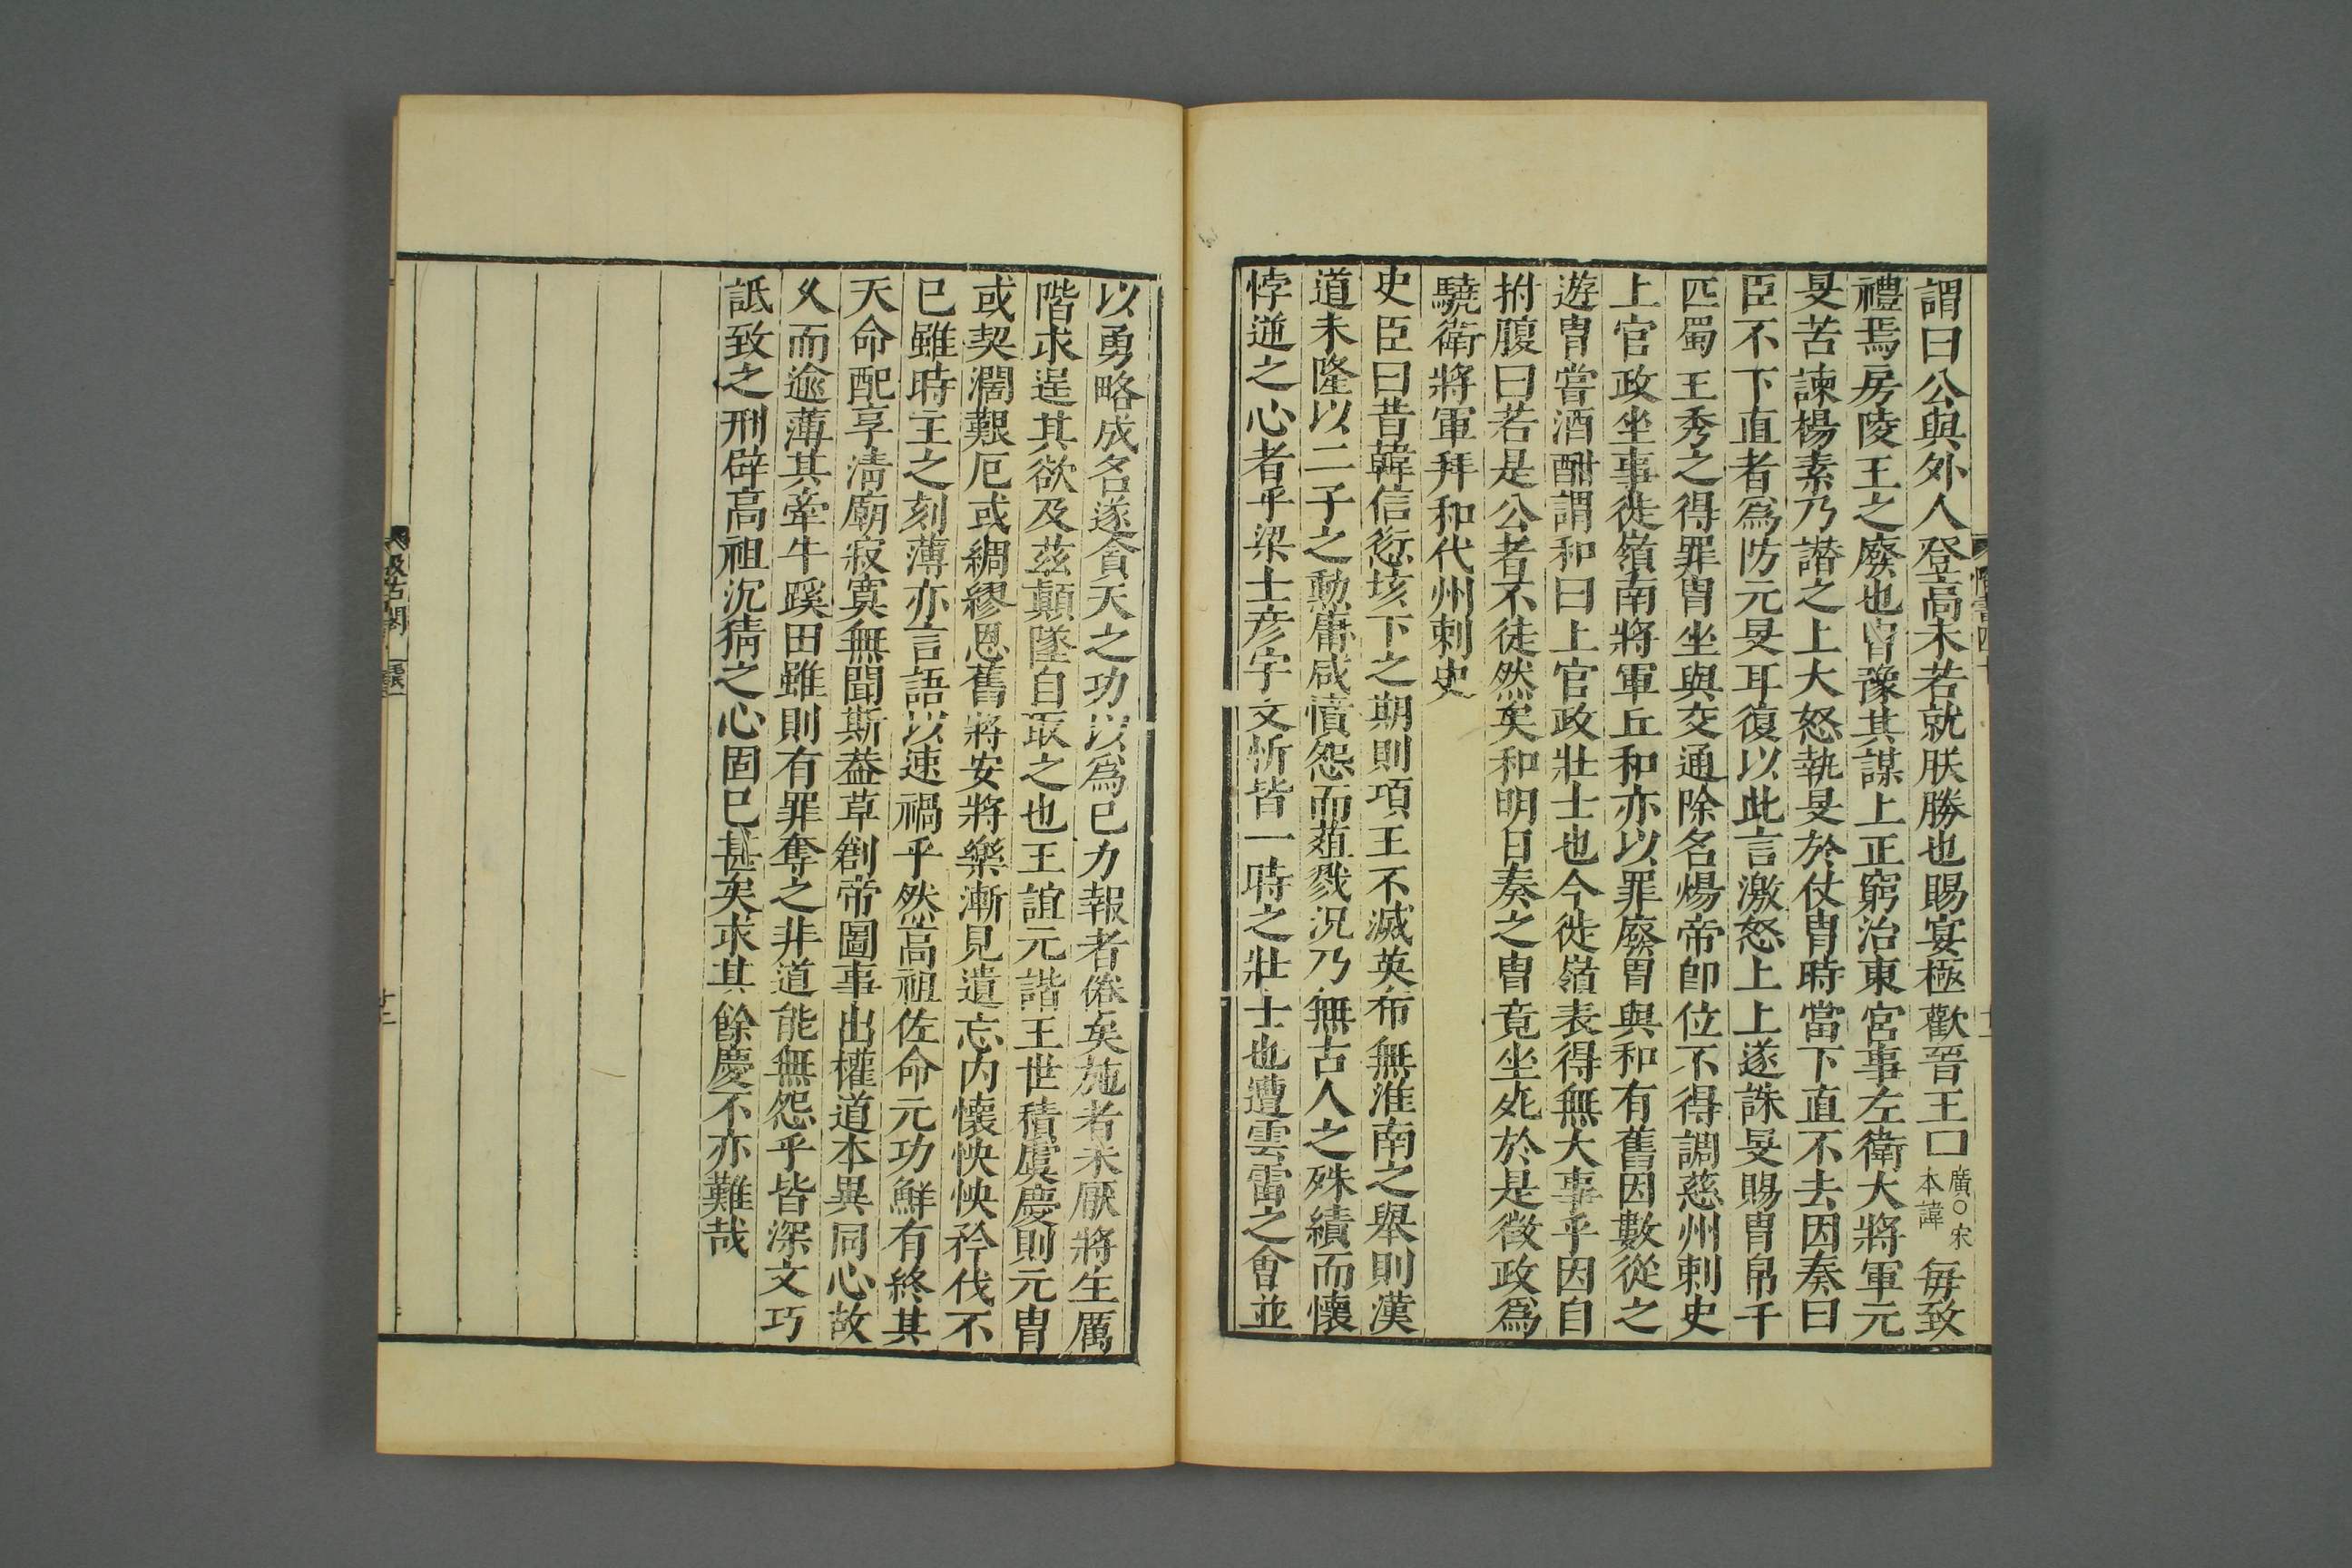 謂曰公與外人登高未若就朕勝也賜宴極歡晉王口廣○宋本諱每致
禮焉房陵王之廢也胄豫其謀上正窮治東宮事左衛大將軍元
旻苦諫楊素乃譖之上大怒執旻於仗胄時當下直不去因奏曰
臣不下直者爲防元旻耳復以此言激怒上上遂誅旻賜胄帛千
匹蜀王秀之得罪胄坐與交通除名煬帝卽位不得調慈州刺史
上官政坐事徙嶺南將軍丘和亦以罪廢胄與和有舊因數從之
遊胄嘗酒酣謂和曰上官政壯士也今徙嶺表得無大事乎因自
拊腹曰若是公者不徒然矣和明日奏之胄竟坐死於是徵政爲
驍衛將軍拜和代州刺史
史臣曰昔韓信愆垓下之期則項王不滅英布無淮南之舉則漢
道未隆以二子之勳庸咸憤怨而葅戮況乃無古人之殊績而懷
悖逆之心者乎梁士彦宇文忻皆一時之壯士也遭雲雷之會並
以勇略成名遂貪天之功以爲已力報者倦矣施者未厭將生厲
階求逞其欲及茲顛墜自取之也王誼元諧王世積虞慶則元胄
或契濶艱厄或綢繆恩舊將安將樂漸見遺忘内懷怏怏矜伐不
已雖時主之刻薄亦言語以速禍乎然高祖佐命元功鮮有終其
天命配享清廟寂寞無聞斯蓋草創帝圖事出權道本異同心故
久而逾薄其牽牛蹊田雖則有罪奪之非道能無怨乎皆深文巧
詆致之刑辟高祖沉猜之心固已甚矣求其餘慶不亦難哉
汲古閣